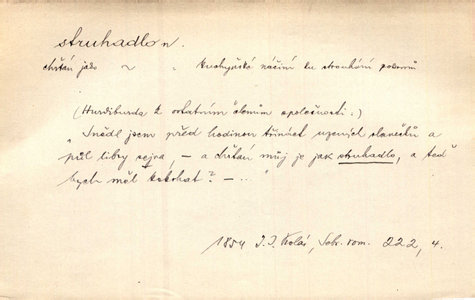 struhadlo n.
chřtán jako ~ „ kuchyňské náčiní ku strouhání pokrmů
(Hurdiburda k ostatním členům společnosti:)
„Snědl jsem před hodinou třináct uzených slanečků a
půl libry sejra, – a chřtán můj je jak struhadlo, a teď
bych měl kokrhat? – ... "
1854 J. J. Kolár, Sebr. rom. 222, 4.